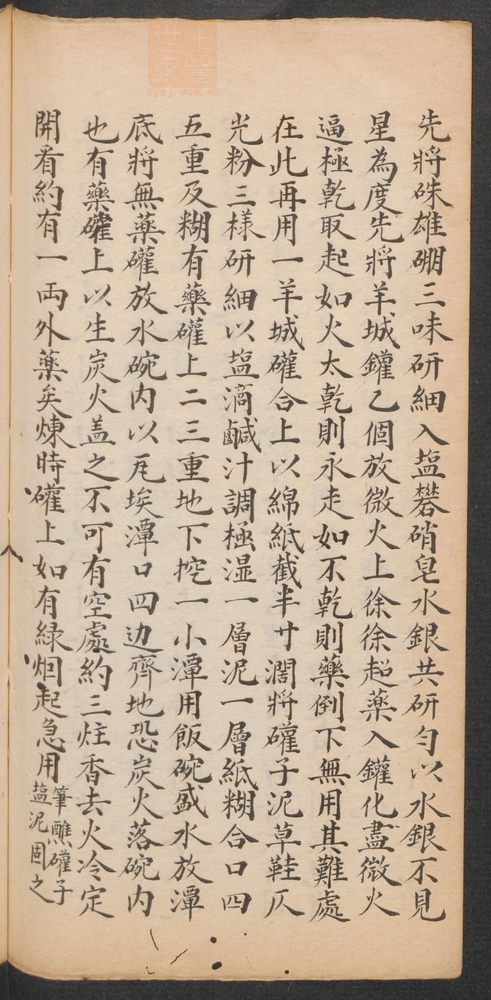 先將硃雄硼三味研細入盐礬硝皂水銀共研匀以水銀不見
星為度先將羊城鑵乙個放微火上徐徐起藥入鑵化盡微火
逼極乾取起如火太乾則永走如不乾則藥倒下無用其難處
在此再用一羊城礶合上以綿紙截半寸濶將礶子泥草鞋仄
光粉三樣研細以盐滴鹹汁調極湿一層泥一層紙糊合口四
五重及糊有藥礶上二三重地下挖一小潭用飯碗盛水放潭
底將無藥礶放水碗内以瓦埃潭口四边齊地恐炭火落碗内
也有藥礶上以生炭火盖之不可有空處約三炷香去火冷定
開看約有一両外藥矣煉時礶上如有緑烟起急用筆醮礶子
盐泥固之